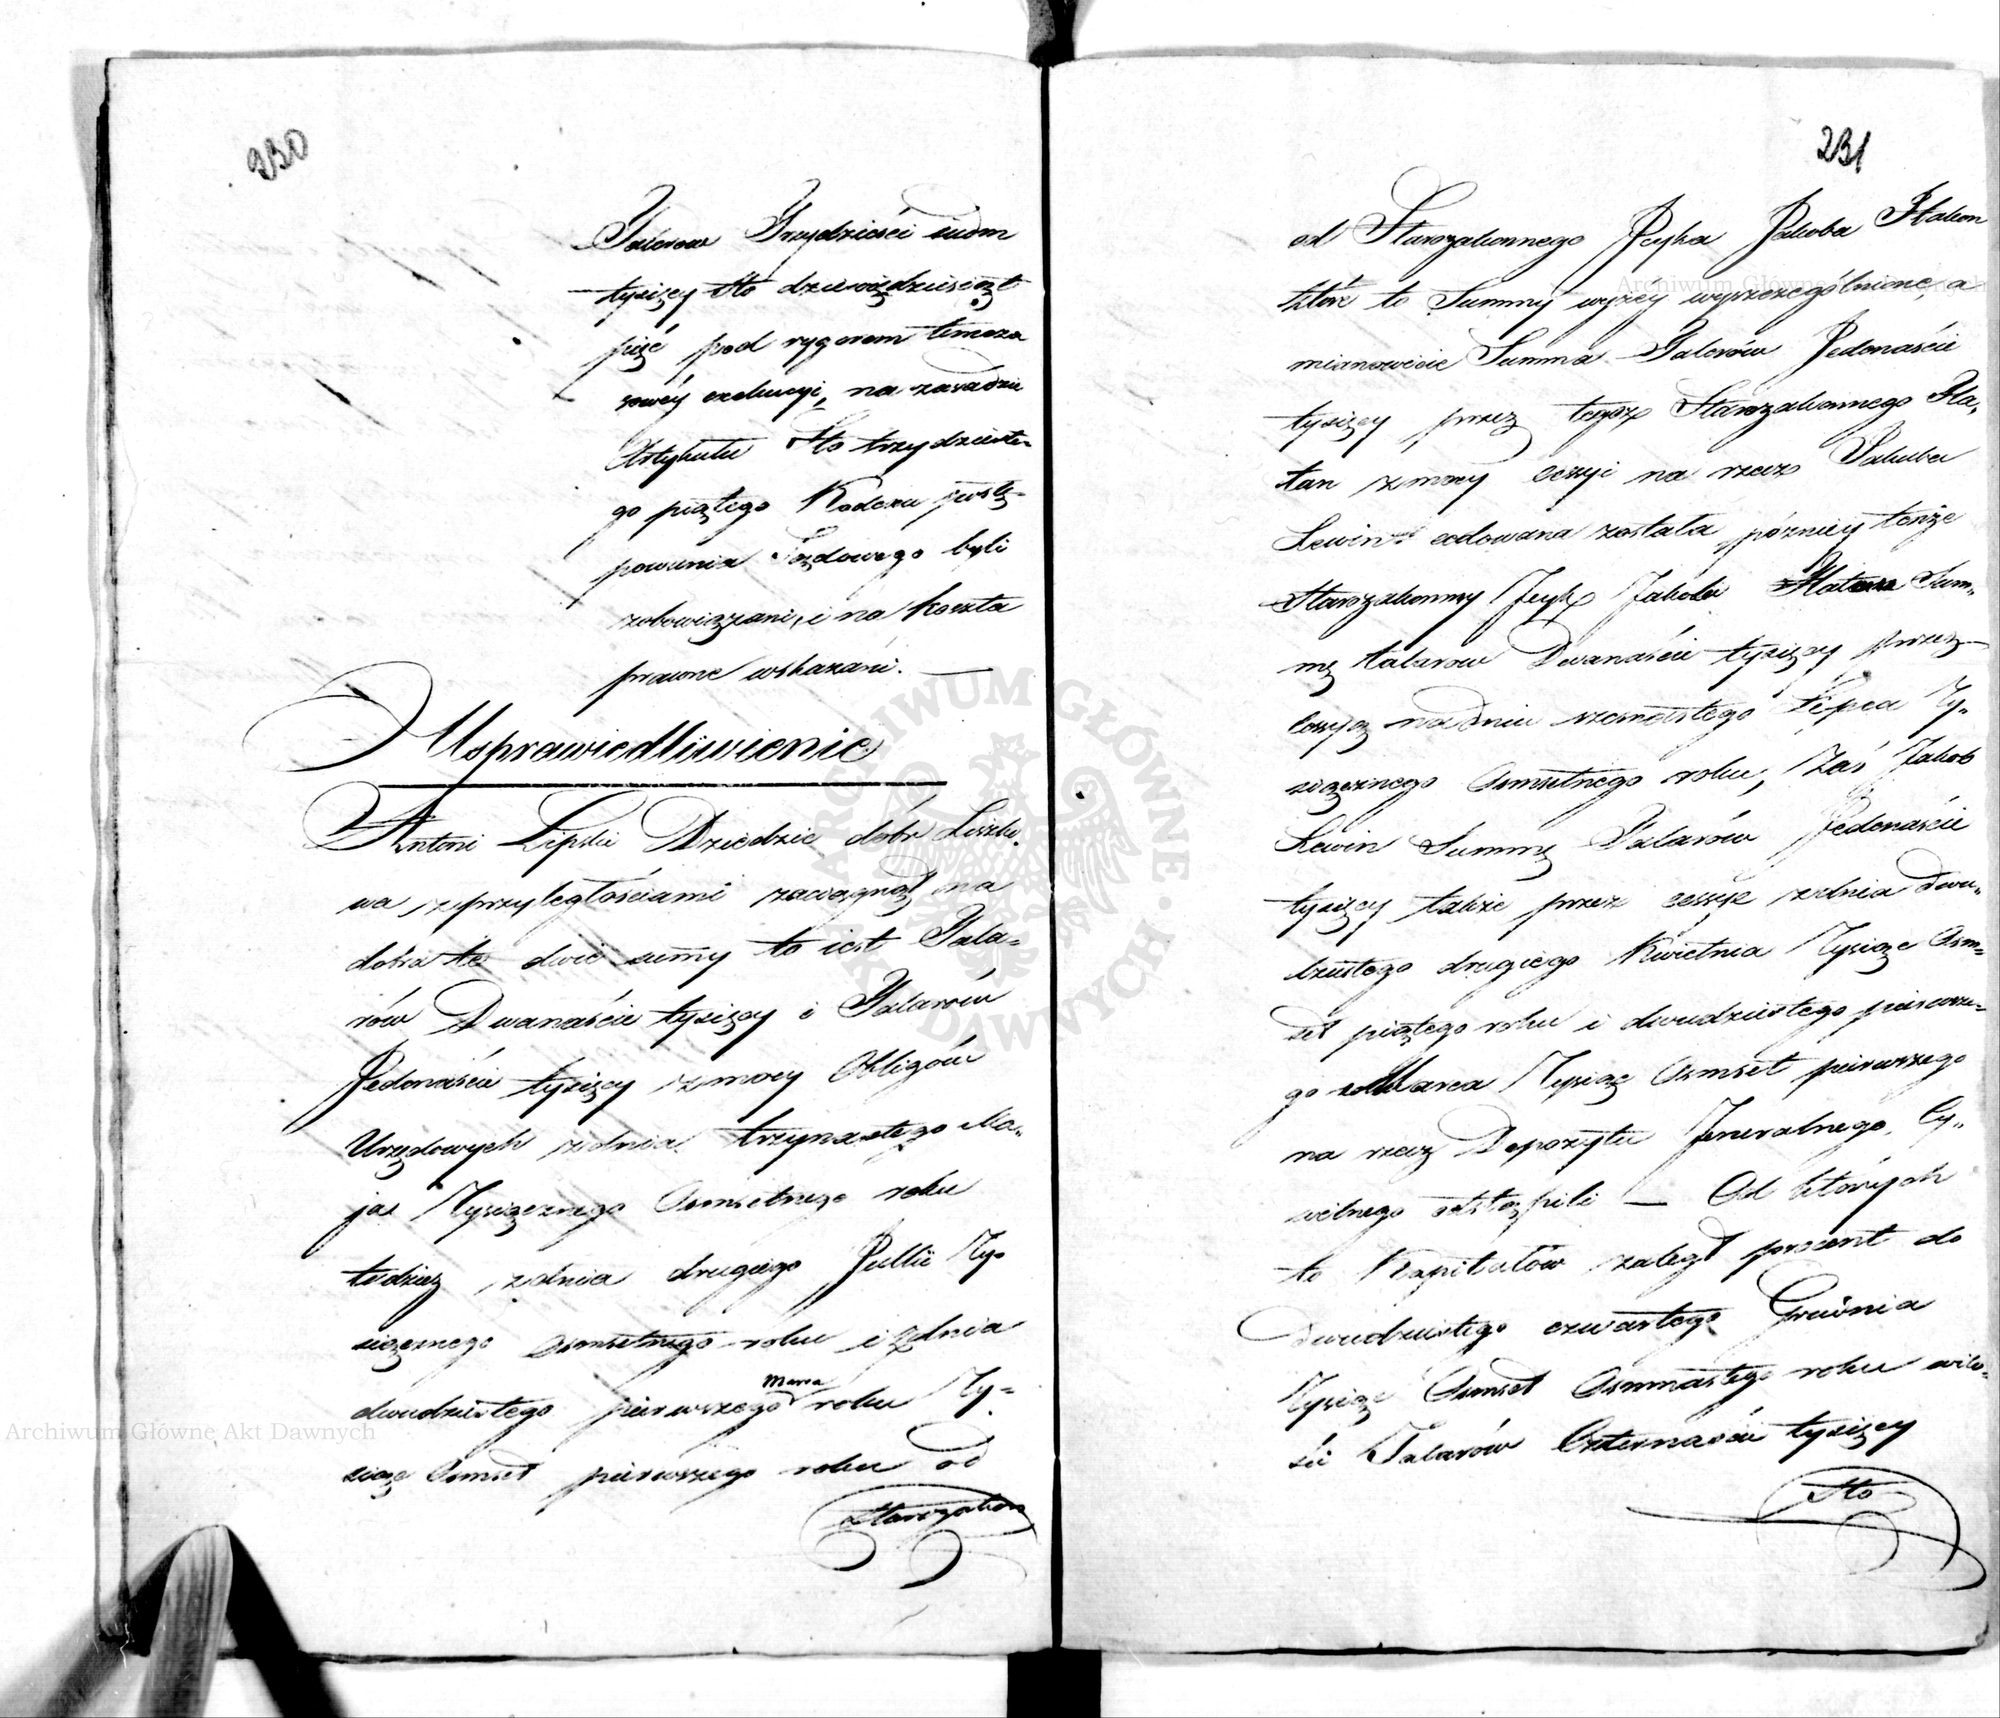 230
Talarow Trzydzieści siedm
tysięcy sto dziewięćdziesiąt
pięć pod rygorem tymcza
sowéy exekucyi, na zasadzie
Artykułu Sto trzydzieste-
go piątego Kodexu postę-
powania Sądowego byli
zobowiązani, i na koszta
prawne wskazani. —
Usprawiedliwienie
Antoni Lipski Dziedzic dobr Liszko-
wa z przyległościami zaciągnął na
dobra te dwie sumy to iest Tala-
rów Dwanaście tysięcy i Talarów
Jedenaście tysięcy z mocy Obligów
Urzędowych z dnia trzynastego Ma-
ja Tysiącznego Osmsetnego roku
tudzież z dnia drugiego Julii Ty-
siącznego Osmsetnego roku i z dnia
dwudziestego pierwszego Marca roku Ty-
siąc Osmset pierwszego roku od
Starozakon
231
od Starozakonnego Jcyka Jakoba Natan
które to Summy wyżey wyszczególnione, a
mianowicie Summa Talarów Jedenaście
tysięcy przez tegoż Starozakonnego Na-
tan z mocy cessyi na rzecz Jakuba
Lewin cedowana została, późniey tenże
Starozakonny Jcyk Jakob Natan Sum-
mę talarow Dwanaście tysięcy przez
cessyą na dniu szesnastego Lipca Ty-
siącznego Osmsetnego roku, Zaś Jakob
Lewin Summę Talarów Jedenaście
tysięcy także przez cessye z dnia dwu-
dziestego drugiego Kwietnia Tysiąc Osm-
set piątego roku i dwudziestego pierwsze-
go Marca Tysiąc Osmset pierwszego
na rzecz Depozytu Jeneralnego Cy-
wilnego odstąpili — Od których
to Kapitałów zaległ procent do
dwudziestego czwartego Grudnia
Tysiąc Osmset Osmnastego roku w ilo-
ści Talarów Czternaście tysięcy
Sto